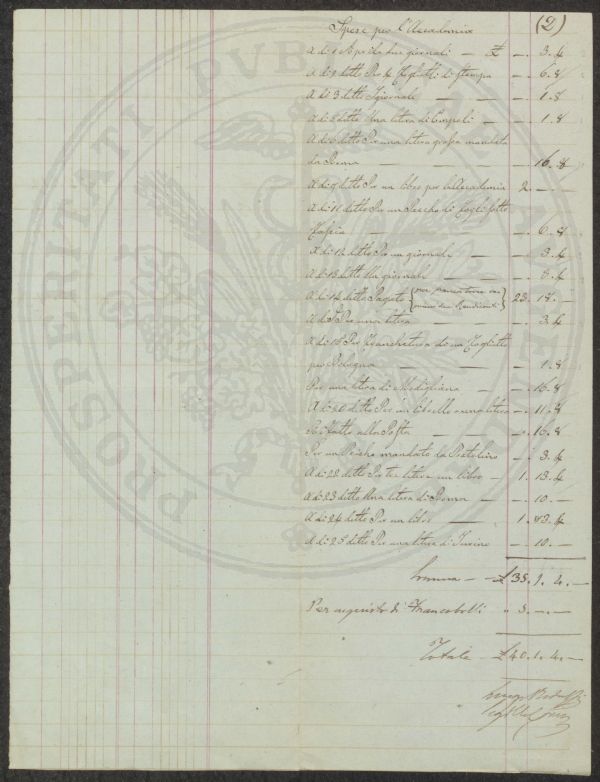 (2)
Spese per l'Accademia
A dì 1 Aprile due giornali — £ —. 3. 4
A dì 2 ditto Per 4 Foglietti di stampa — —. 6. 8
A dì 3 ditto Giornale — —. 1. 8
A dì 5 ditto Una letera di Empoli — —. 1. 8
A dì 6 ditto Per una letera grossa mandata
da Roma — —. 16. 8
A dì 9 ditto Per un libro per l'Accademia 2. —. —
A dì 11 ditto Per un di fogli sotto
fascia — —. 6. 8
A dì 12 ditto Per un giornale —. 3. 4
A dì 13 ditto Un giornale — —. 3. 4
A dì 14 ditto Pagato 23. 18. —
A dì Per una letera — —. 3. 4
A dì 16 Per Francatura di un Foglietto
per Bologna — —. 1. 8
Per una letera di Modigliana — —. 16. 8
A dì 20 ditto Per un libello letera —. 11. 8
alla Posta — —. 16. 8
Per un mandato da —. 3. 4
A dì 22 ditto Per tre letere un libro — 1. 13. 4
A dì 23 ditto Una letera di Roma —. 10. —
A dì 24 ditto Per un libro — 1. 13. 4
A dì 25 ditto Per una letera di Torino —. 10. —
Somma — £ 35. 1. 4. —
Per acquisto di Francobolli " 5. —. —
Totale — £ 40. 1. 4. —
PROPRIETATI PUBLICAE AUGENDAE